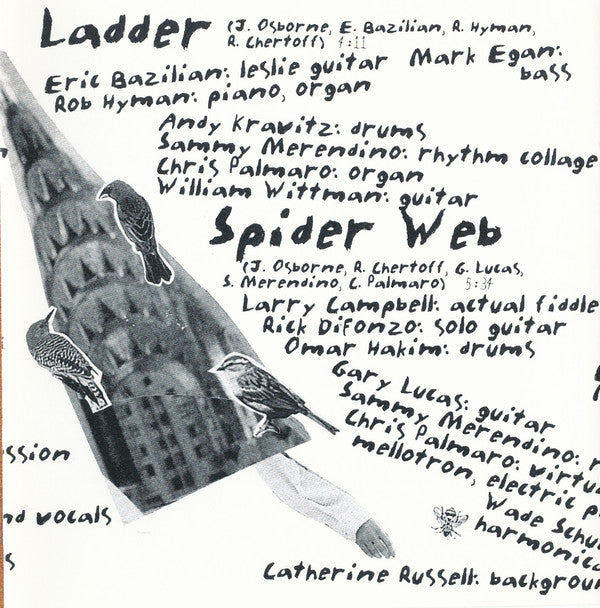 Ladder (J. Osborne, E. Bazilian, R. Hyman,
R. Chertoff) 4:11
Mark Egan:
bass
Eric Bazilian: leslie guitar
Rob Hyman: piano, organ
Andy Kravitz: drums
Sammy Merendino: rhythm collage
Chris Palmaro: organ
William Wittman: guitar
Spider Web
(J. Osborne, R. Chertoff, G. Lucas,
S. Merendino, C. Palmaro) 5:34
Larry Campbell: actual fiddle
Rick DiFonzo: solo guitar
Omar Hakim: drums
Gary Lucas: guitar
Sammy Merendino: r
Chris Palmaro: virtu
mellotron, electric p
Wade Schu
harmonica
Catherine Russell: backgroun
ssion
nd vocals
s